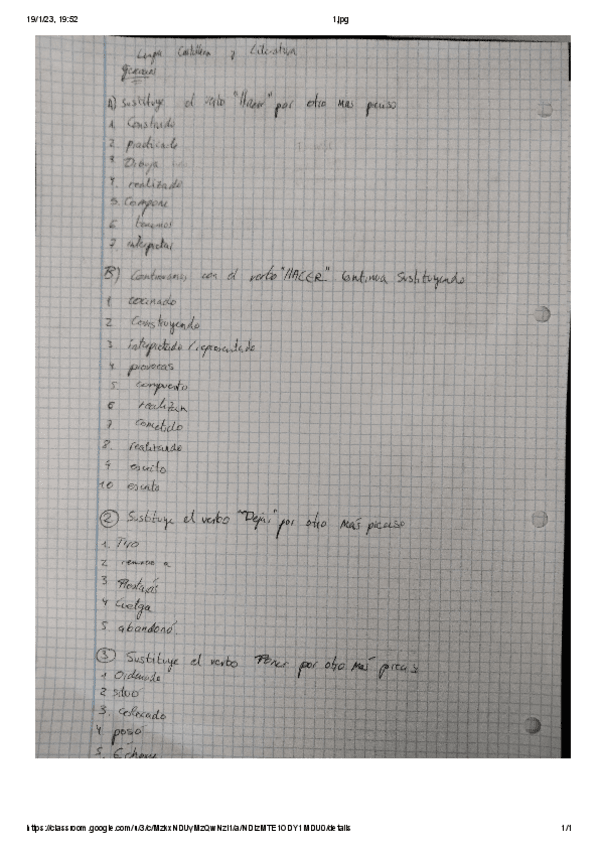 19/1/23, 19:52
1.jpg
Castellana y Literatura
A) Sustituye el verbo "Hacer" por otro mas preciso
1. Construido
2. practicado
3 Dibuja
4. realizado
5. Compone
6 tenemos
7 interpretar
B) con el verbo "HACER" Continua Sustituyendo
1 cocinado
2 Construyendo
3 interpretado / representado
4 provocas
5 compuesto
6 realizan
7 cometido
8. realizando
9 escrito
10 escrito
2 Sustituye el verbo "Dejar" por otro más preciso
1.
2 renuncio a
3
4 Cuelga
5. abandonó
3 Sustituye el verbo Poner por otro más
1 Ordenado
2 situó
3. colocado
4 posó
5.
1/1